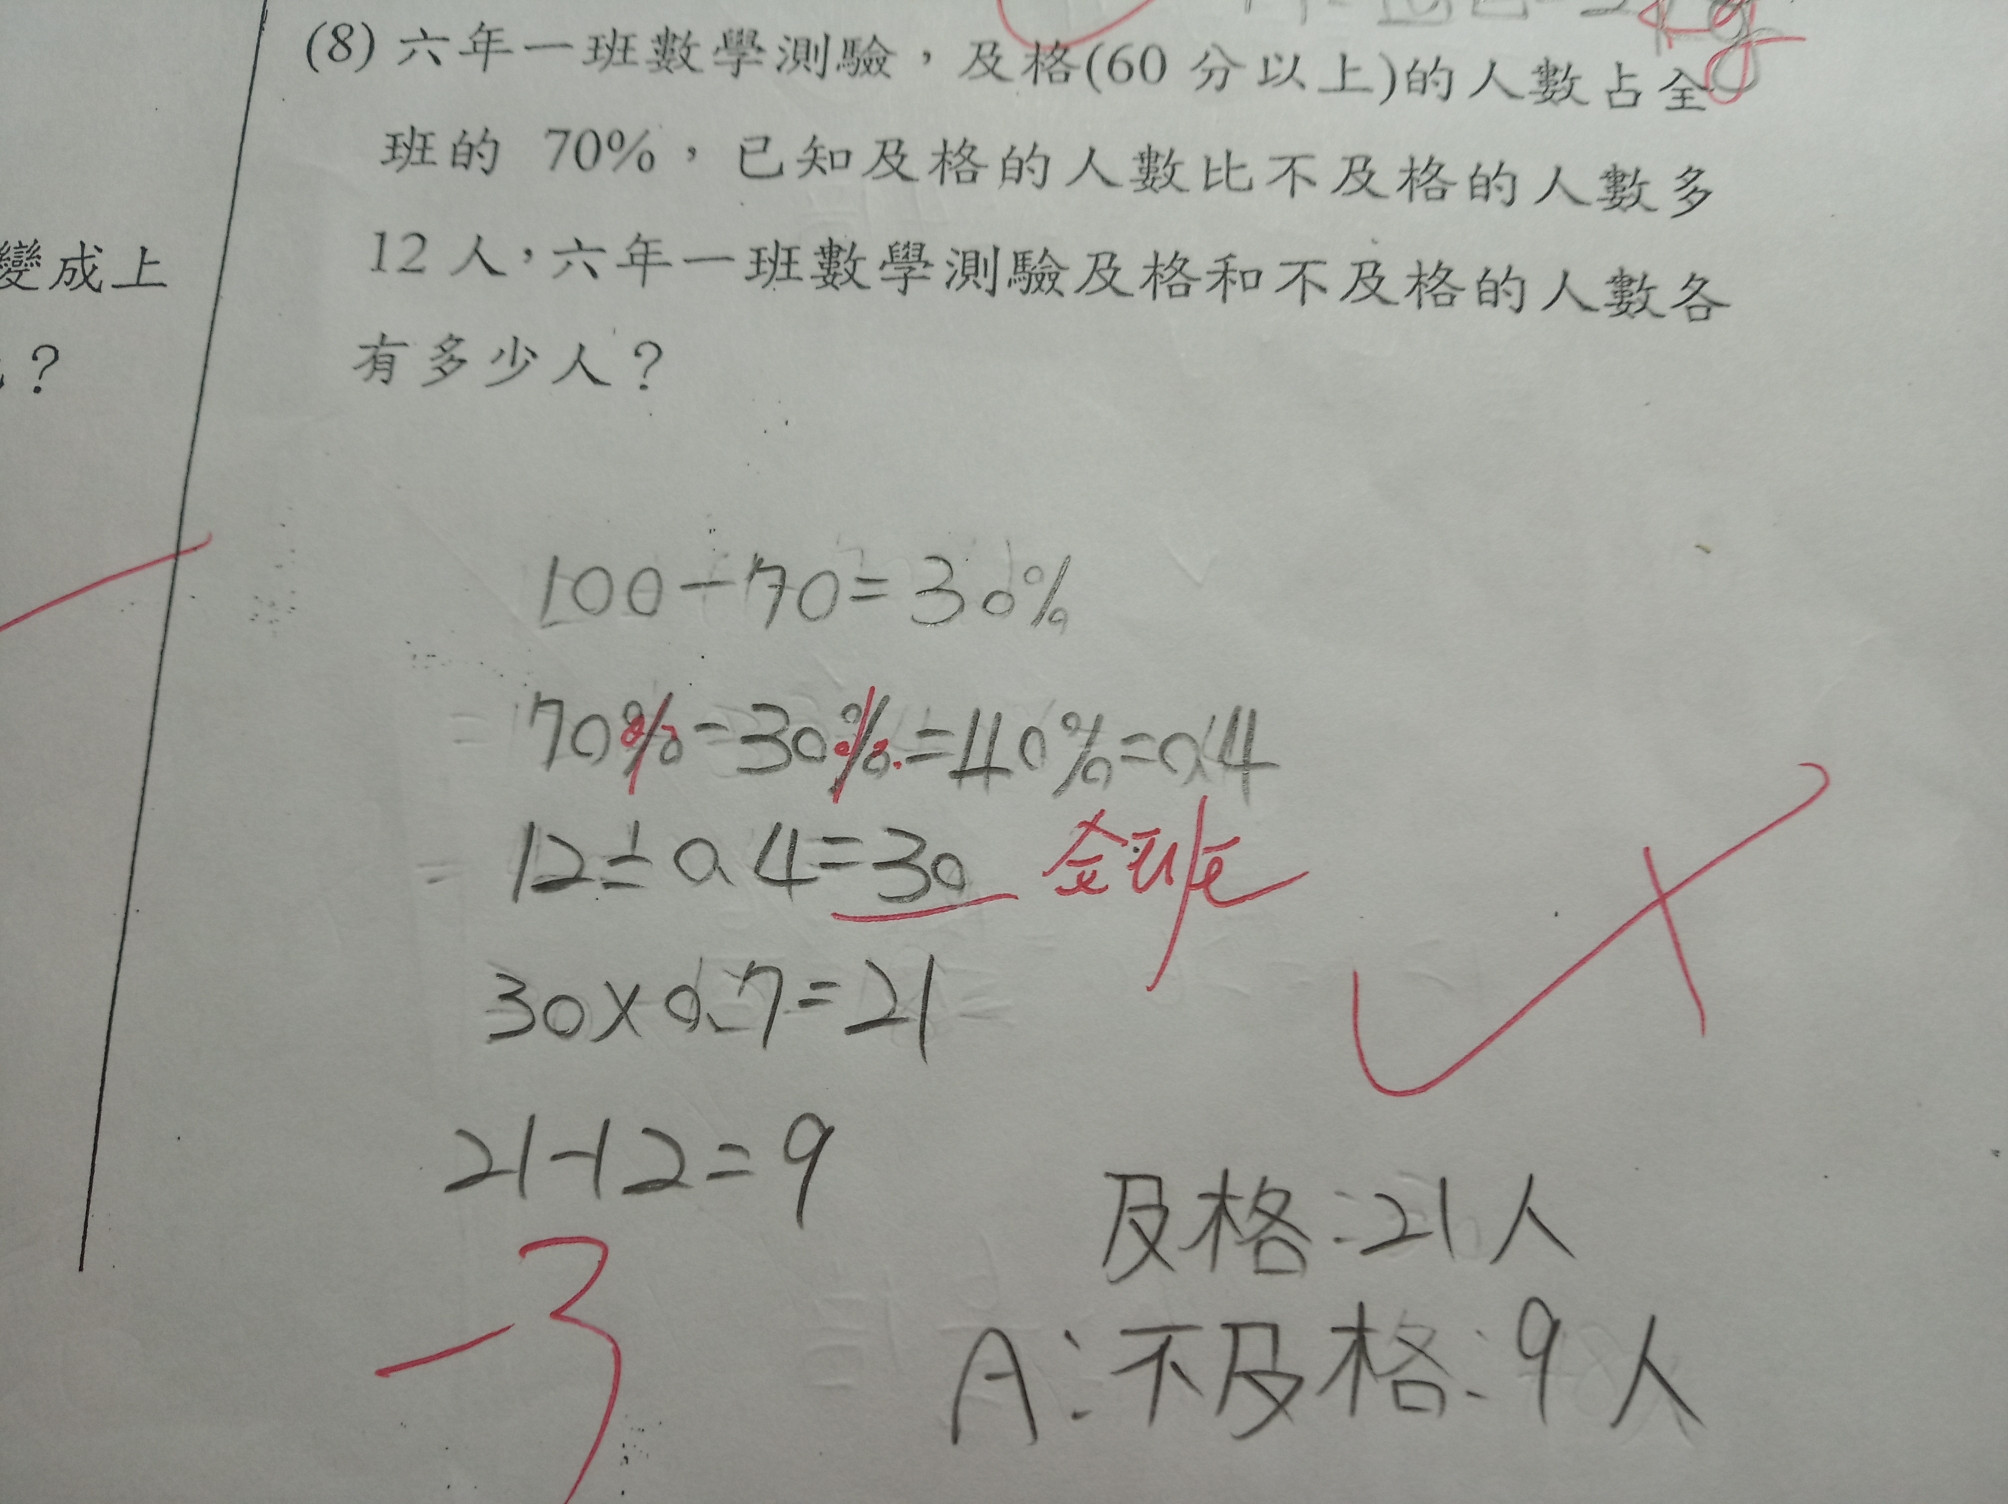 (8) 六年一班數學測驗，及格(60 分以上)的人數占全
班的 70%，已知及格的人數比不及格的人數多
12 人，六年一班數學測驗及格和不及格的人數各
有多少人？
變成上
？
100-70=30%
70%-30%=40%=0.4
12÷0.4=30 全班
30×0.7=21
21-12=9
-3
及格:21人
A:不及格:9人